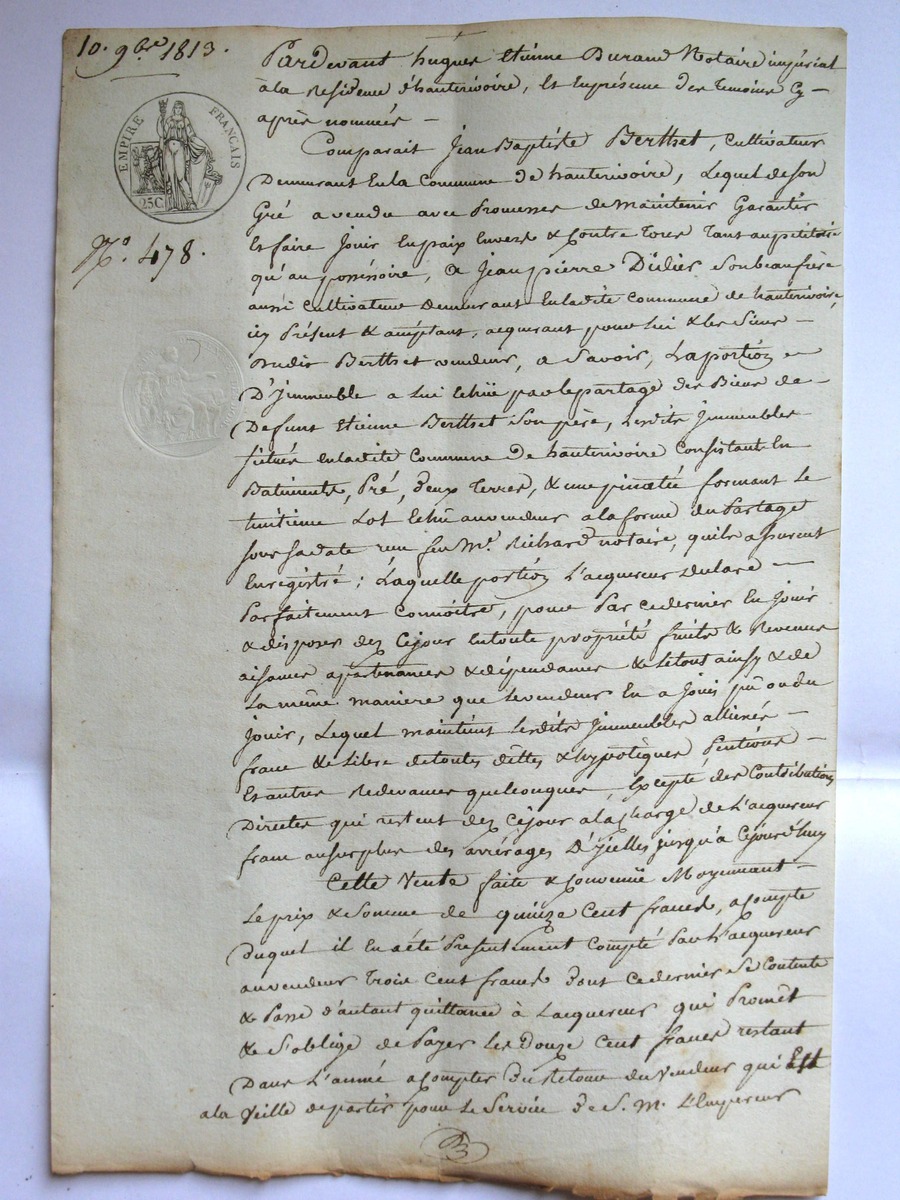 10. 9bre 1813.
EMPIRE FRANÇAIS
25C
No. 478.
Pardevant hugues Etienne Durand Notaire impérial
à la Residence d'hauterivoire, Et En présence des temoins Cy-
après nommés -
Comparait Jean Baptiste Berthet, Cultivateur
Demeurant En la Commune de hauterivoire, Lequel de son
Gré a vendu avec Promesses de maintenir Garantir
Et faire Jouir En paix Envers & Contre tous tant au petitoire
qu'au possessoire, à Jean pierre Didier son beaufrère
aussi Cultivateur Demeurant En ladite Commune de hauterivoire,
icy Présent & acceptant, acquerant pour lui & les siens -
dudit Berthet vendeur, a Savoir, La portion
D'Jmmeuble a Lui Echüe par le partage des Biens de
Defunt Etienne Berthet Son père, Lesdits Jmmeubles
situés en ladite Commune de hauterivoire Consistant En
Batiments, Pré, deux terres, & une pinatée formant Le
huitième Lot Echu au vendeur à la forme du Partage
sous sa date reçu feu Me. Richard notaire, qu'ils assurent
Enregistré; Laquelle portion L'acquereur Declare -
Parfaitement Connoitre, pour Par ce dernier En Jouir
& disposer dez Cejour En toute propriété fruits & Revenus
aisances apartenances & dépendances & Le tout ainsy & de
La même maniere que Le vendeur En a Joui pu ou du
Jouir, Lequel maintient Lesdits Jmmeubles alliénés -
franc & Libre de toutes dettes & hypotèques Pentions -
Et autres Redevances quelconques, Excepté des Contributions
Directes qui restent dez Cejour a la charge de L'acquereur
franc au surplus des arrérages D'jcelles jusqu'à Cejourd'huy
Cette Vente faite & Convenüe Moyennant -
Le prix & Somme de quinze Cent francs, a Compte
Duquel il En a été Presentement Compté Par L'acquereur
au vendeur Trois Cent francs dont Ce dernier Se Contente
& Passe d'autant quittance à L'acquereur qui Promet
& S'oblige de Payer Les Douze Cent francs restant
Dans L'année a Compter du Retour du Vendeur qui Est
a la Veille de partir pour Le Service de S. M. L'Empereur